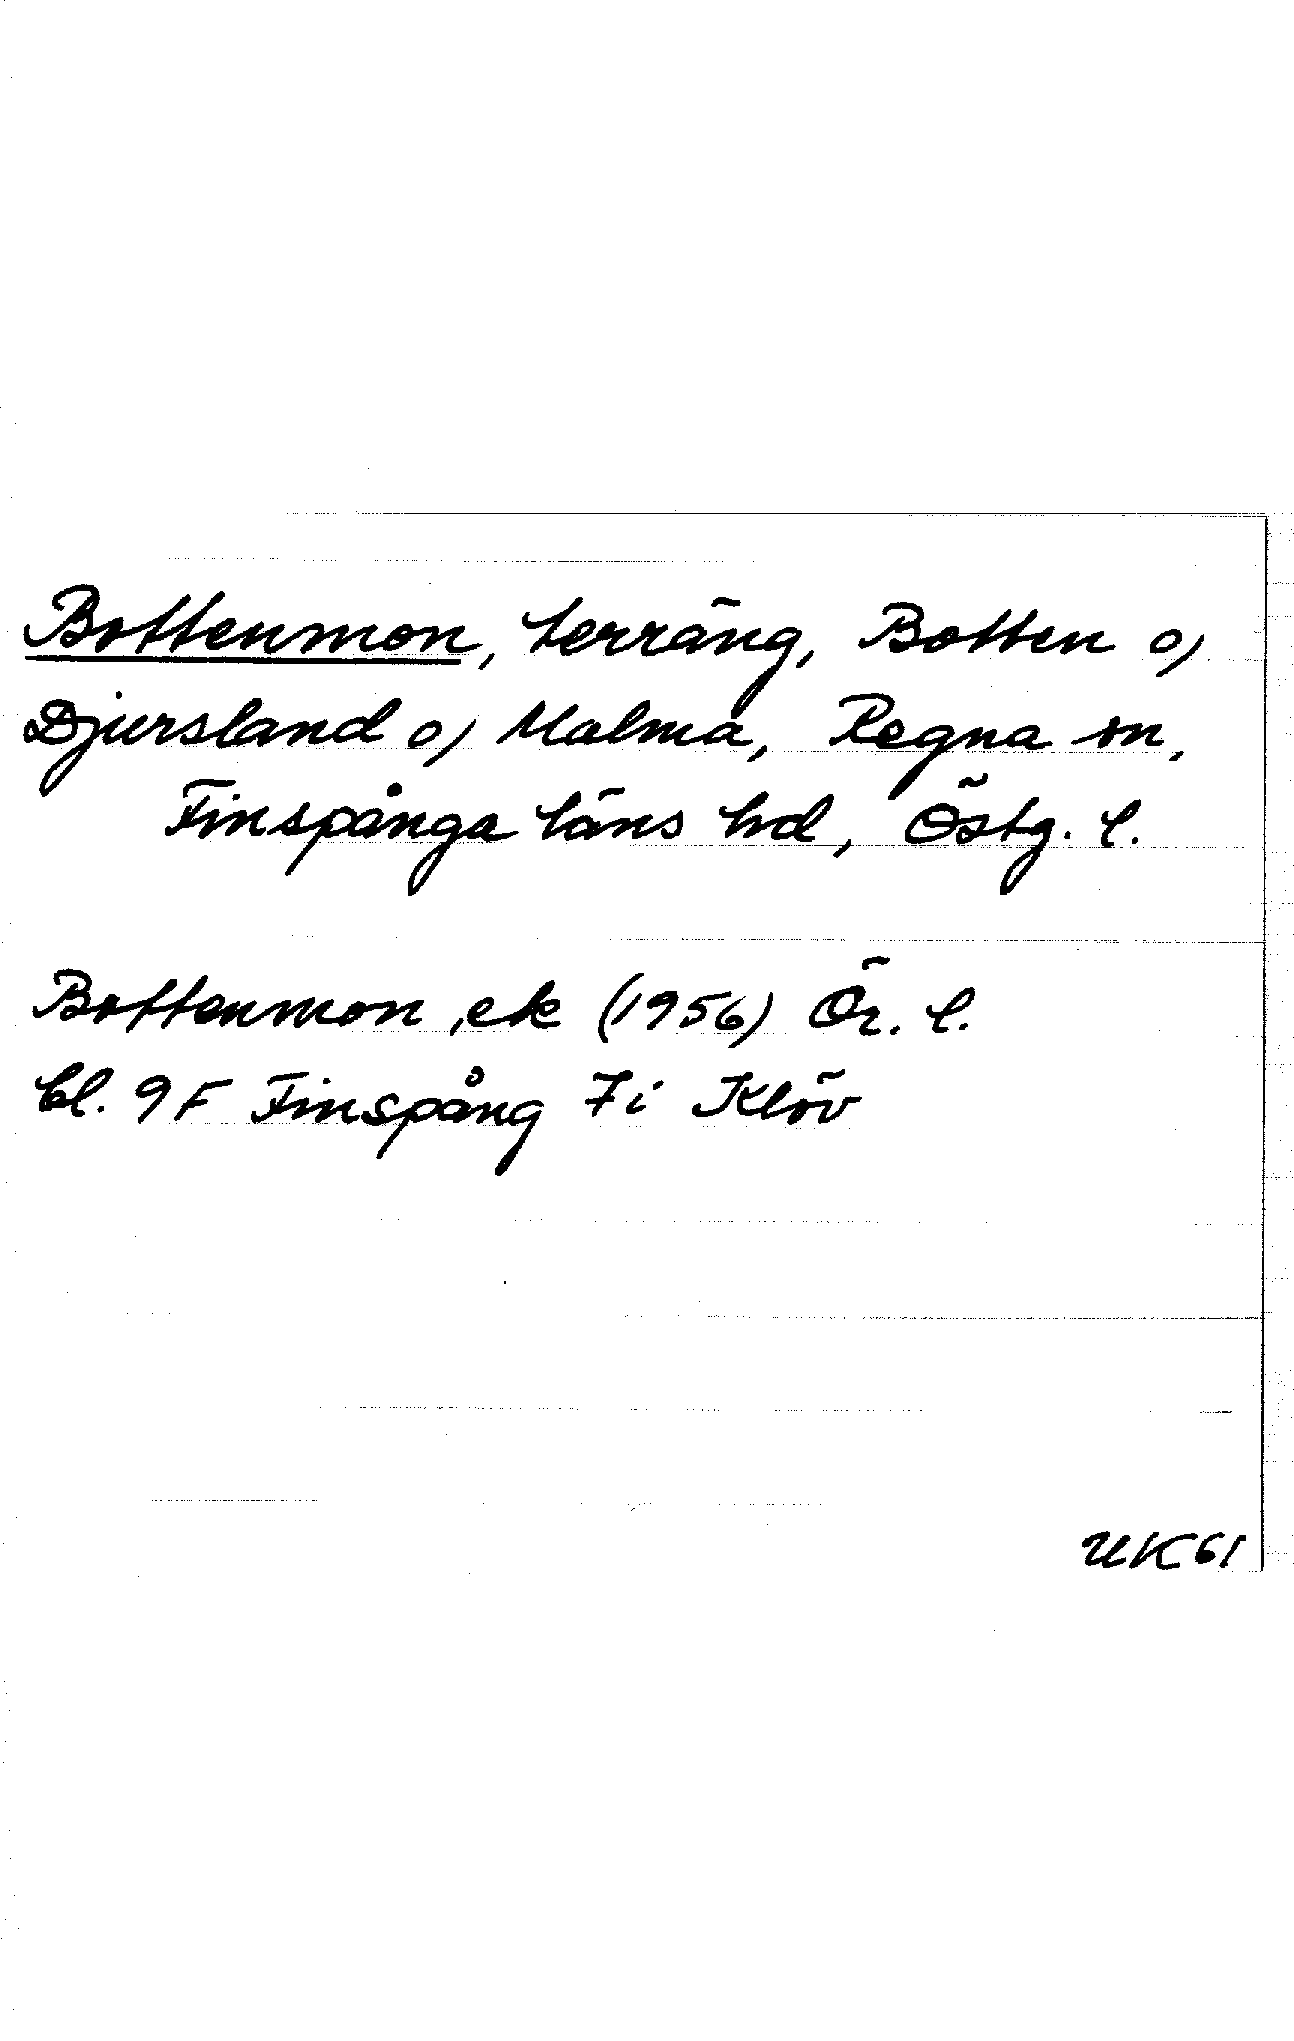 Bottenmon, terräng, Botten o)
Djursland o) Malma, Regna sn,
Finspånga läns hd, Östg. l.
Bottenmon, ek (1956) Ör. l.
bl. 9F Finspång 7i Klöv
UK61